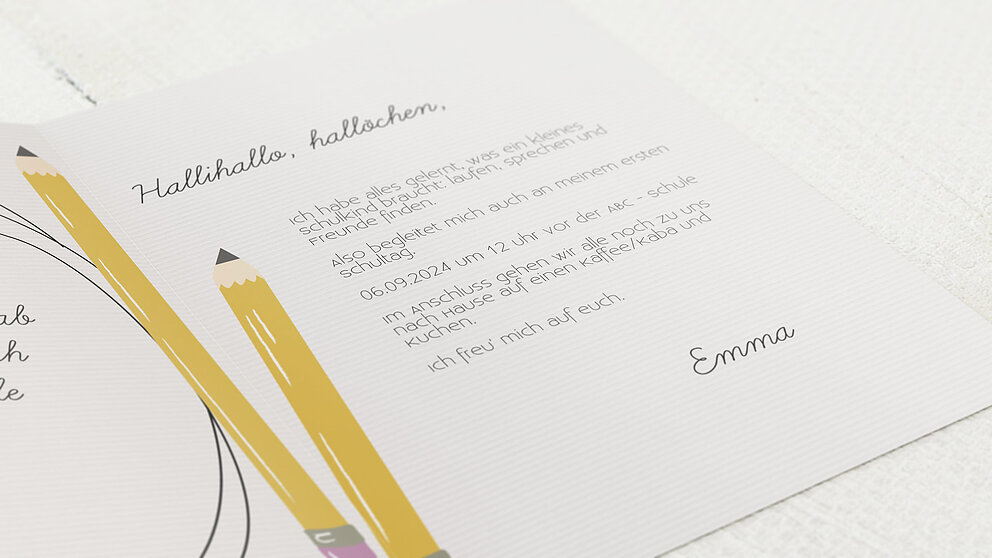 Hallihallo, hallöchen,
Ich habe alles gelernt, was ein kleines
Schulkind braucht: laufen, sprechen und
Freunde finden.
Also begleitet mich auch an meinem ersten
Schultag.
06.09.2024 um 12 Uhr vor der ABC - Schule
Im Anschluss gehen wir alle noch zu uns
nach Hause auf einen Kaffee/Kaba und
Kuchen.
Ich freu' mich auf euch.
Emma